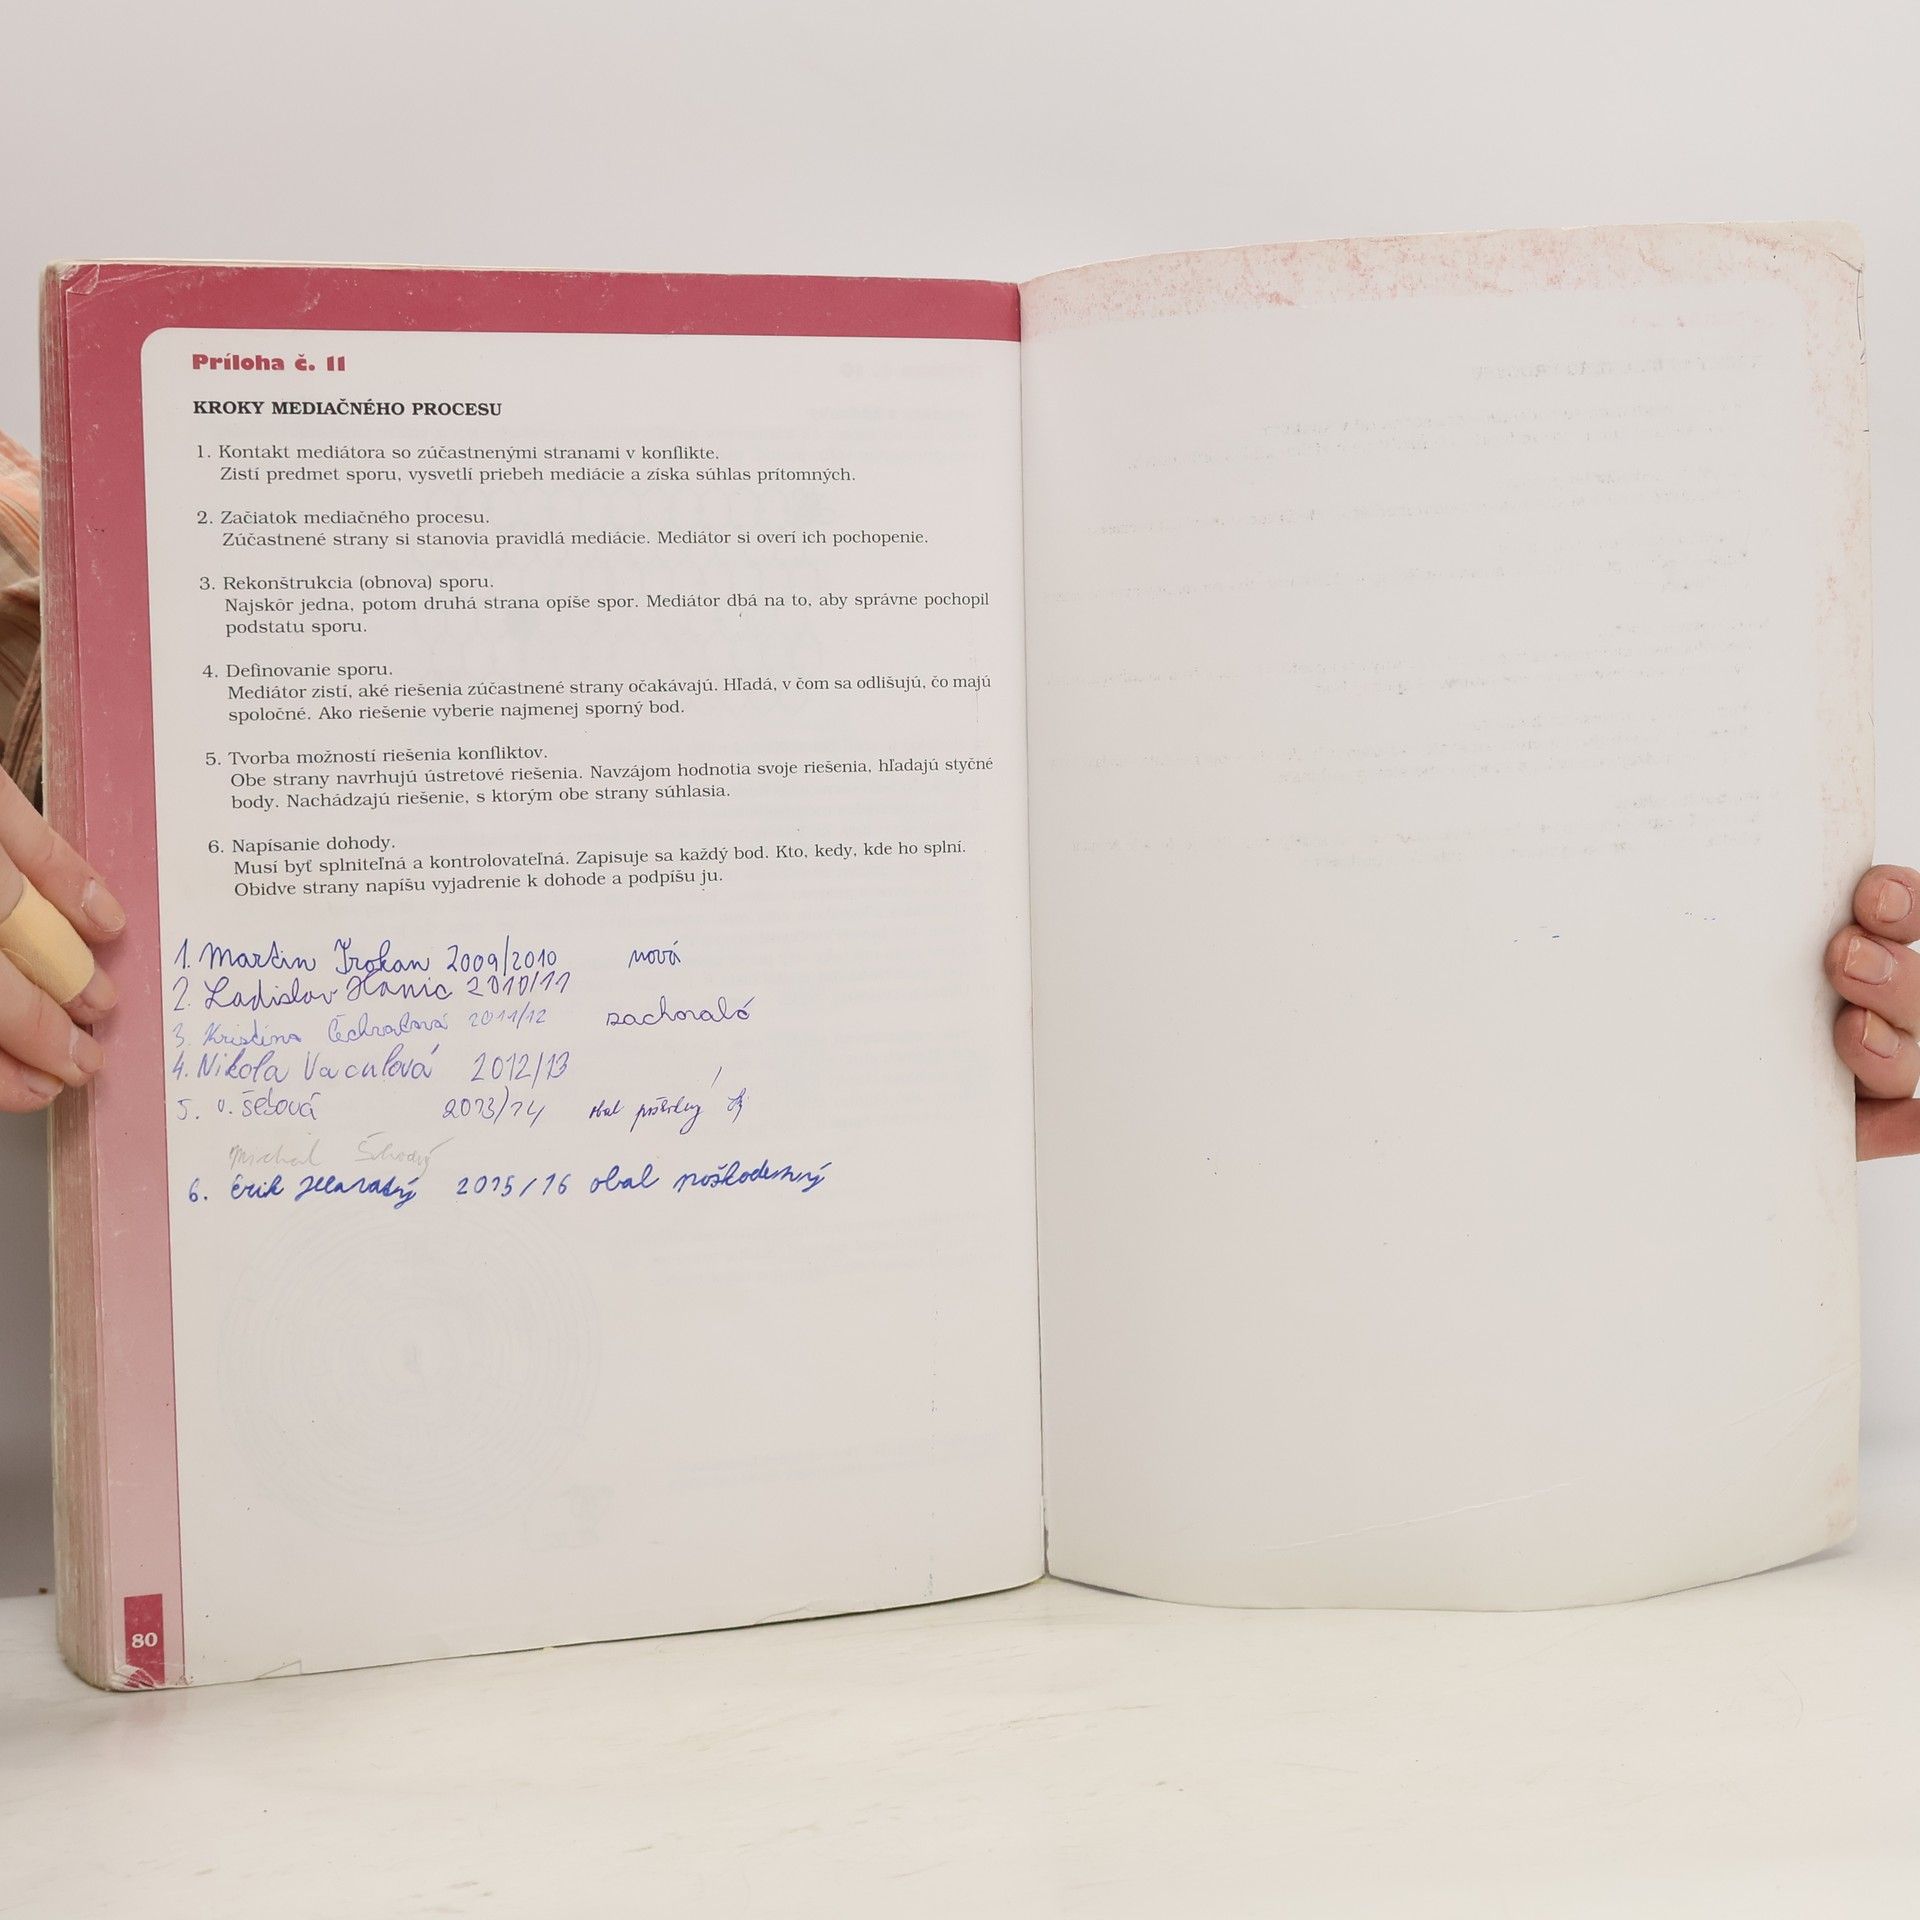 Príloha č. 11
KROKY MEDIAČNÉHO PROCESU
1. Kontakt mediátora so zúčastnenými stranami v konflikte.
Zistí predmet sporu, vysvetlí priebeh mediácie a získa súhlas prítomných.
2. Začiatok mediačného procesu.
Zúčastnené strany si stanovia pravidlá mediácie. Mediátor si overí ich pochopenie.
3. Rekonštrukcia (obnova) sporu.
Najskôr jedna, potom druhá strana opíše spor. Mediátor dbá na to, aby správne pochopil
podstatu sporu.
4. Definovanie sporu.
Mediátor zistí, aké riešenia zúčastnené strany očakávajú. Hľadá, v čom sa odlišujú, čo majú
spoločné. Ako riešenie vyberie najmenej sporný bod.
5. Tvorba možností riešenia konfliktov.
Obe strany navrhujú ústretové riešenia. Navzájom hodnotia svoje riešenia, hľadajú styčné
body. Nachádzajú riešenie, s ktorým obe strany súhlasia.
6. Napísanie dohody.
Musí byť splniteľná a kontrolovateľná. Zapisuje sa každý bod. Kto, kedy, kde ho splní.
Obidve strany napíšu vyjadrenie k dohode a podpíšu ju.
1. Martin Trokan 2009/2010 nová
2. Ladislav Hanic 2010/11
3. Kristína 2011/12 zachovalá
4. Nikola Vaculová 2012/13
5. 2013/14 obal
Michal
6. Erik 2015/16 obal poškodený
80